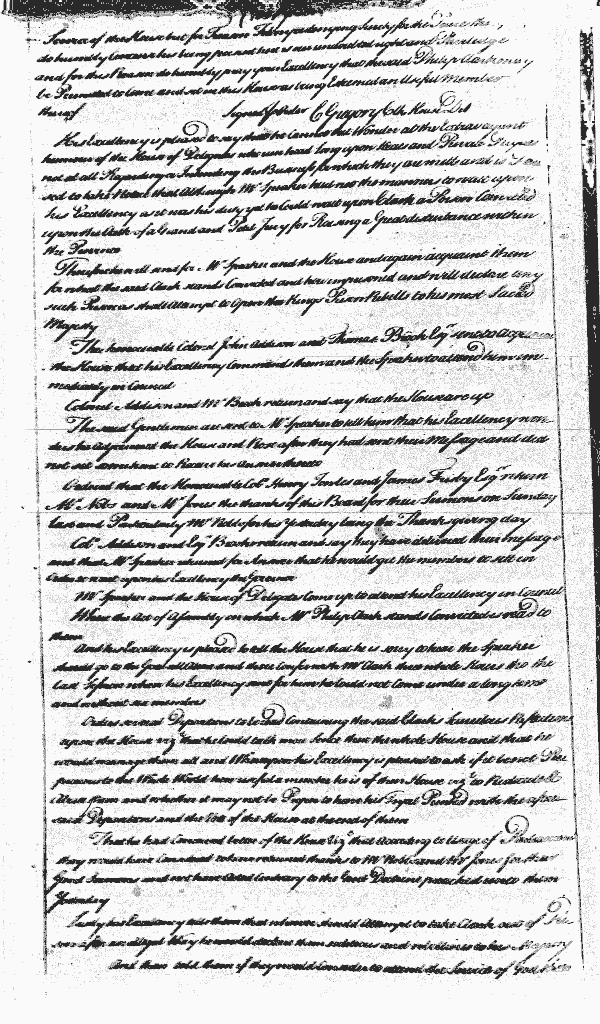 Service of the House but for Treason Felony or denying Surety for the Peace the
do humbly Conceive his being present here is our undoubted right and Priviledge
and for this Reason do humbly pray your Excellency that the said Philip Clark may
be Permitted to come and sit in this House as being Esteemed an Useful Member
thereof
Signed p Order C Gregory Clk House Del
His Excellency is pleased to say that he cannot but Wonder at the Extravagant
humour of the House of Delegates who
not at all Regarding or Intending the Business for which they are mett and is
sed to take Notice that Although Mr Speaker had not the manners to wait upon
his Excellency as it was his duty yet he Could wait upon Clark a Person Convicted
upon the Oath of a Grand and Petit Jury for Raising a Great disturbance within
the Province
Therefore he will send for Mr Speaker and the House and again acquaint them
for what the said Clark stands Convicted and how imprisoned and will declare any
such Person as shall Attempt to Open the Kings Prison Rebells to his most Sacred
Majesty
The honourable Colonel John Addison and Thomas Brooke Esqr sent to Acquaint
the House that his Excellency Commands them and the Speaker to attend him im-
mediately in Council
Colonel Addison and Mr Brooke return and say that the House are up
The said Gentlemen are sent to Mr Speaker to tell him that his Excellency won-
ders he Adjourned the House and Rose after they had sent their Message and did
not sit some time to Receive his Answer thereto
Ordered that the Honourable Colo Henry Jowles and James Frisby Esqr return
Mr Nobbs and Mr Jones the thanks of this Board for their Sermons on Sunday
last and Particularly Mr Nobbs for his Yesterday being the Thanksgiving day
Colo Addison and Esqr Brooke return and say they have delivered their message
and that Mr Speaker returned for Answer that he would get the members to sit in
Order to wait upon his Excellency the Governor
Mr Speaker and the House of Delegates Come up to attend his Excellency in Council
Where the Act of Assembly on which Mr Philip Clark stands Convicted is read to
them
And his Excellency is pleased to tell the House that he is sorry to hear the Speaker
should go to the Goal all alone and there Confer with Mr Clark then whole House tho the
last Session when his Excellency sent for him he Could not Come under a long time
and without six members
Orders several Depositions to be read Containing the said Clarks Reflections
upon the House vizt that he could talk more Sence then the whole House and that he
would manage them all and Whereupon his Excellency is pleased to ask if it be not
to the Whole World how useful a member he is of their House vizt to Ridicule &
Abuse them and whether it may not be Proper to have his Tryal Printed with the afore-
said Depositions and the Vote of the House at the end of them
That he had Conceived better of the House vizt that According to Usage of Parliament
they would have Considered to have returned thanks to Mr Nobbs and Mr Jones for their
Good Sermons and not have Acted Contrary to the Good Doctrine preached unto them
Yesterday
Lastly his Excellency tells them that whoever should Attempt to take Clark out of
after an illegal Way he would declare them seditious and rebellious to his Majesty
And then told them if they would Consider to attend the Service of God